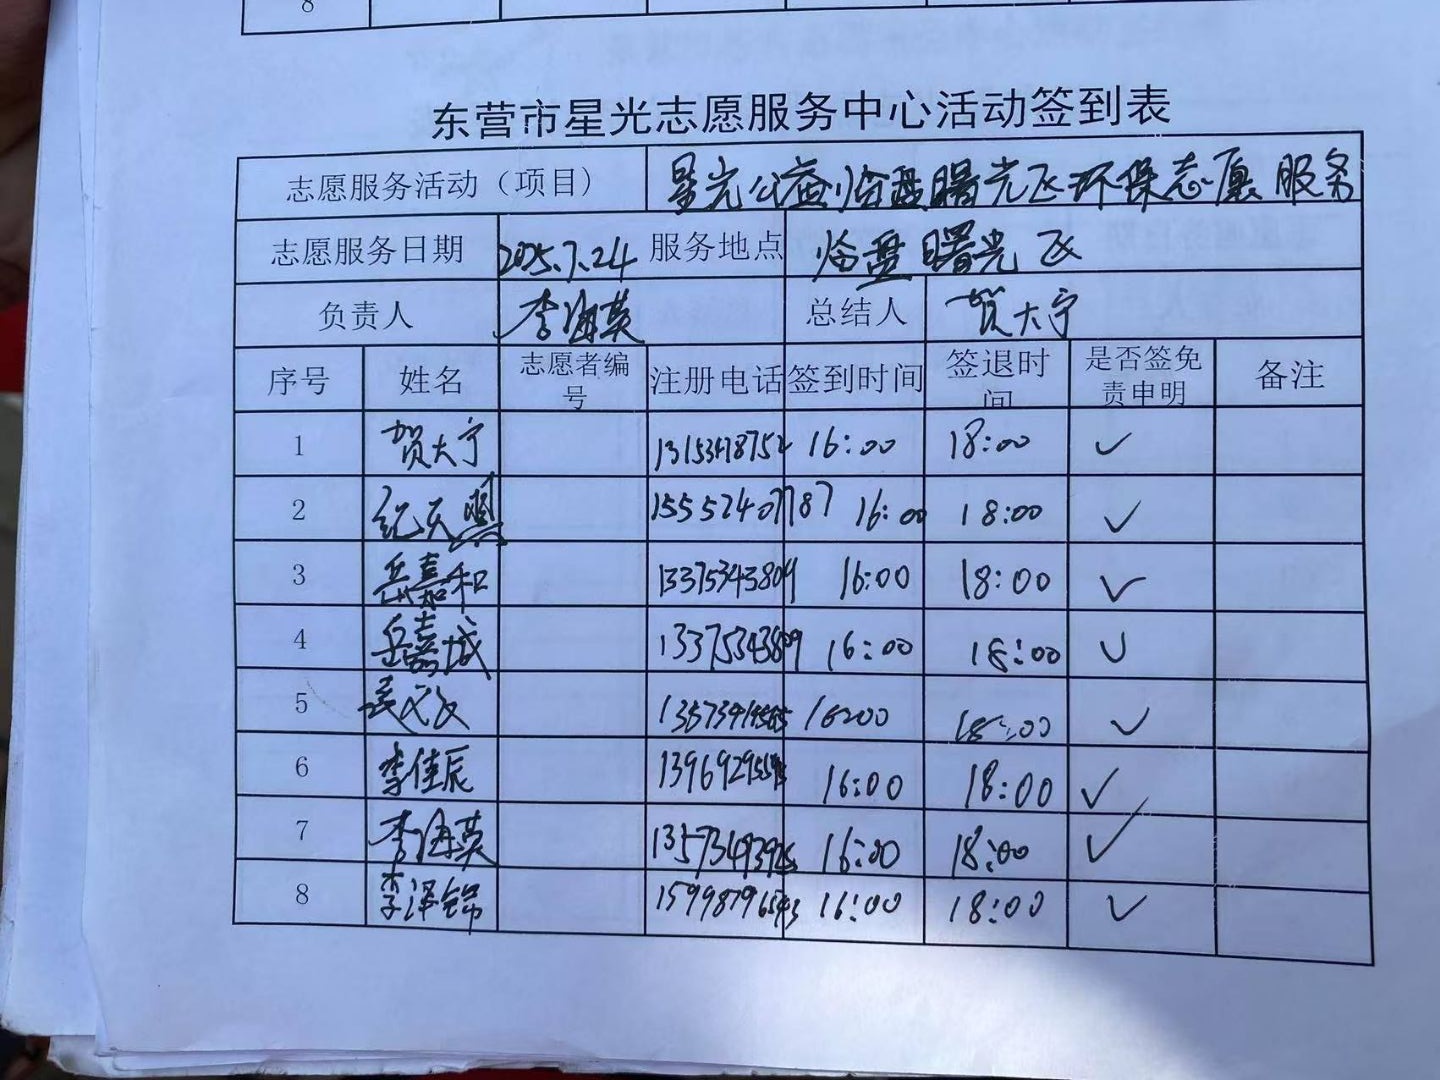 8
东营市星光志愿服务中心活动签到表
志愿服务活动（项目） 星光公益临盘曙光区环保志愿服务
志愿服务日期 2025.7.24 服务地点 临盘曙光区
负责人 李海英 总结人 贺大宁
序号 姓名 志愿者编号 注册电话 签到时间 签退时间 是否签免责申明 备注
1 贺大宁 16:00 18:00 ✓
2 纪天 15552407787 16:00 18:00 ✓
3 岳嘉和 13375343809 16:00 18:00 ✓
4 岳嘉城 13375343809 16:00 18:00 ✓
5 16:00 18:00 ✓
6 李佳辰 16:00 18:00 ✓
7 李海英 16:00 18:00 ✓
8 李泽锦 16:00 18:00 ✓